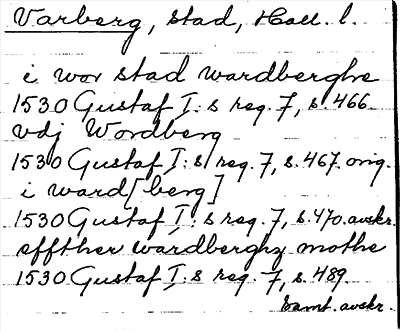 Varberg, stad, Hall. l.
i wor stad wardberghe
1530 Gustaf I:s reg. 7, s. 466.
vdj Wordberg
1530 Gustaf I:s reg. 7, s. 467. orig.
i ward[berg]
1530 Gustaf I:s reg. 7, s. 470. avskr.
effther wardberghz mothe
1530 Gustaf I:s reg. 7, s. 489
samt. avskr.